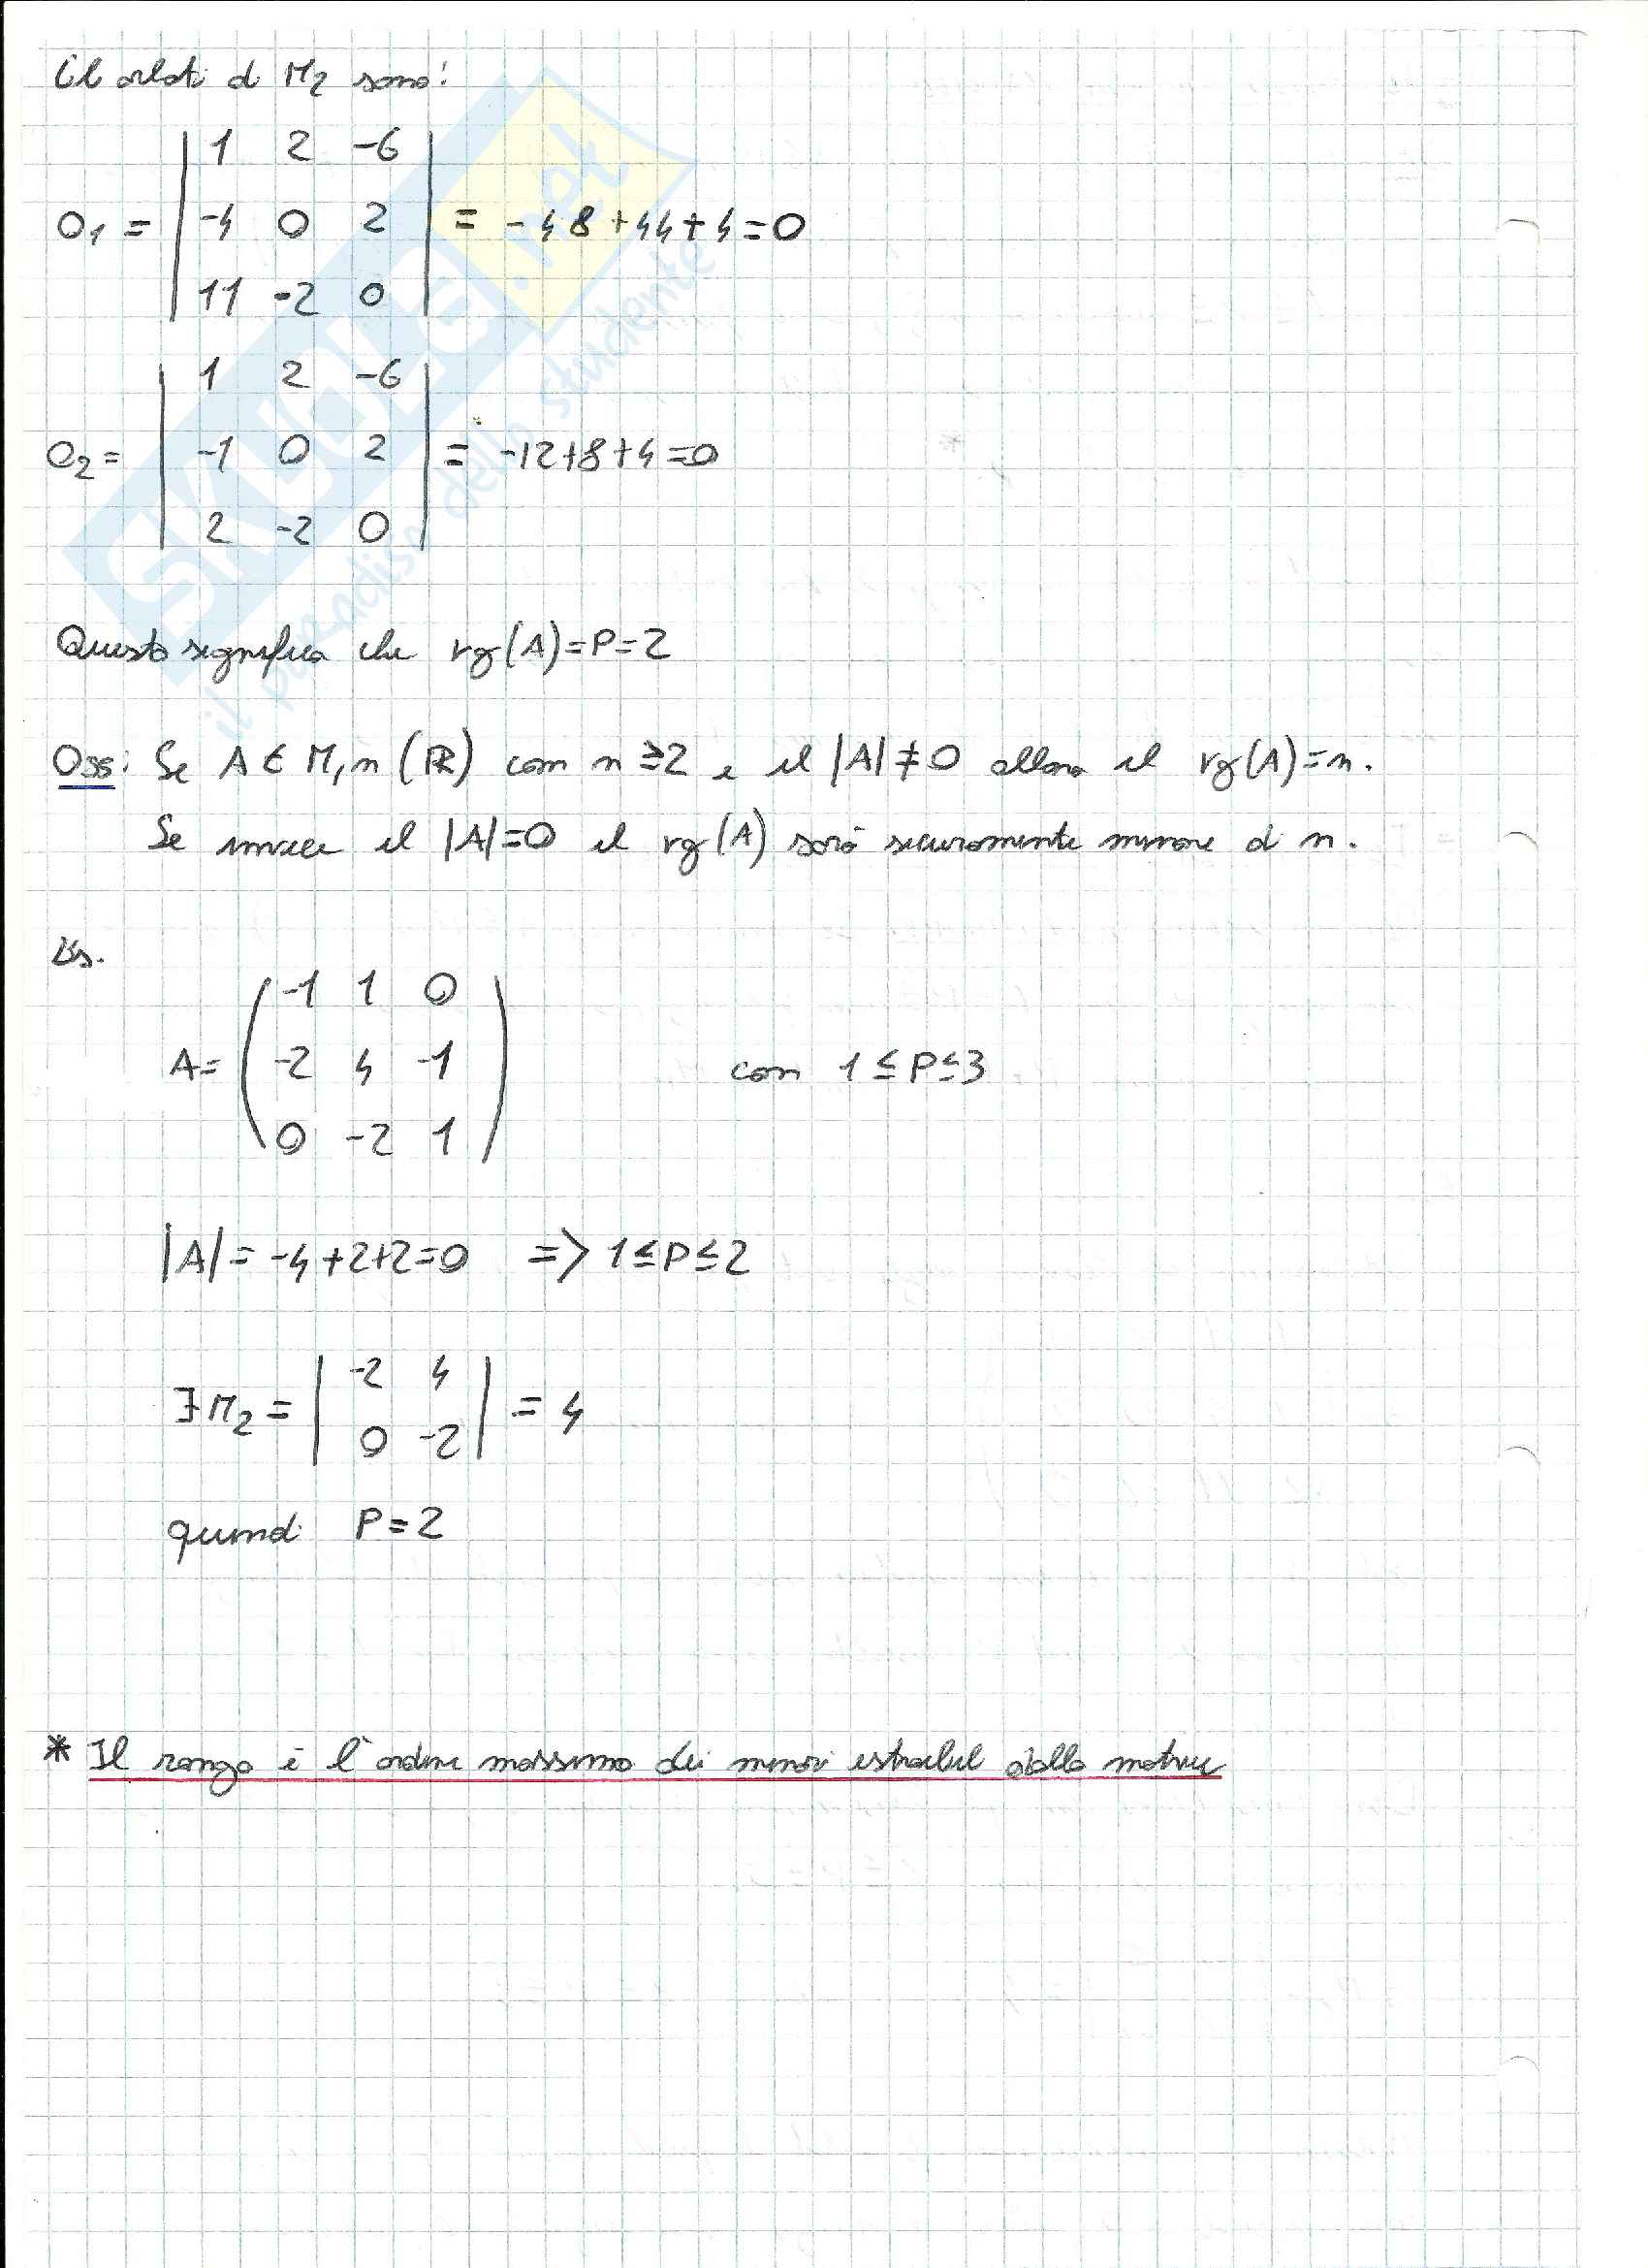 Gli orlati di M2 sono:
O1 = | 1 2 -6 |
| -4 0 2 | = -48+44+4=0
| 11 -2 0 |
O2 = | 1 2 -6 |
| -1 0 2 | = -12+8+4=0
| 2 -2 0 |
Questo significa che rg(A)=P=2
Oss: Se A ∈ M,n (R) con n ≥2 e il |A|≠0 allora il rg(A)=n.
Se invece il |A|=0 il rg(A) sarà sicuramente minore di n.
Es.
-1 1 0
A= -2 4 -1 con 1≤P≤3
0 -2 1
|A|= -4+2+2=0 => 1≤P≤2
∃M2 = | -2 4 | = 4
| 0 -2 |
quindi P=2
* Il rango è l'ordine massimo dei minori estraibili dalla matrice
SKUOLA.net
il paradiso dello studente